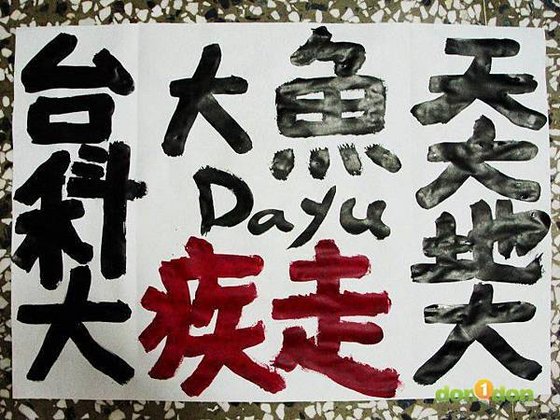 台科大
大魚
Dayu
疾走
天大地大
don1don